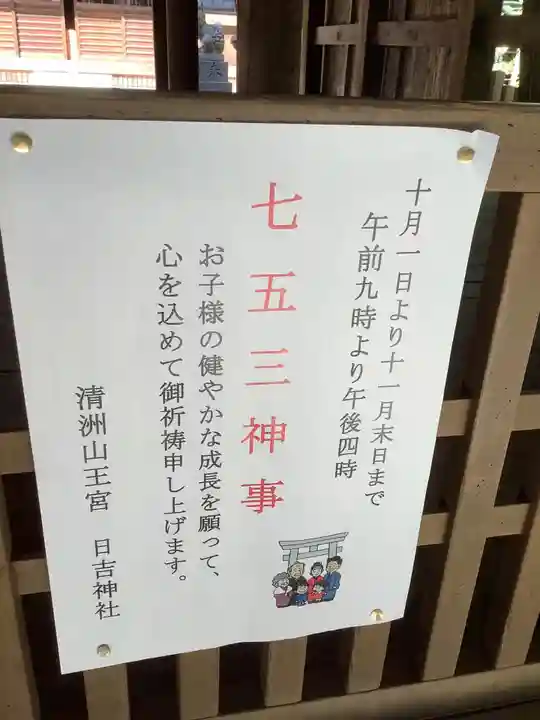 十月一日より十一月末日まで
午前九時より午後四時
七五三神事
お子様の健やかな成長を願って、
心を込めて御祈祷申し上げます。
清洲山王宮 日吉神社